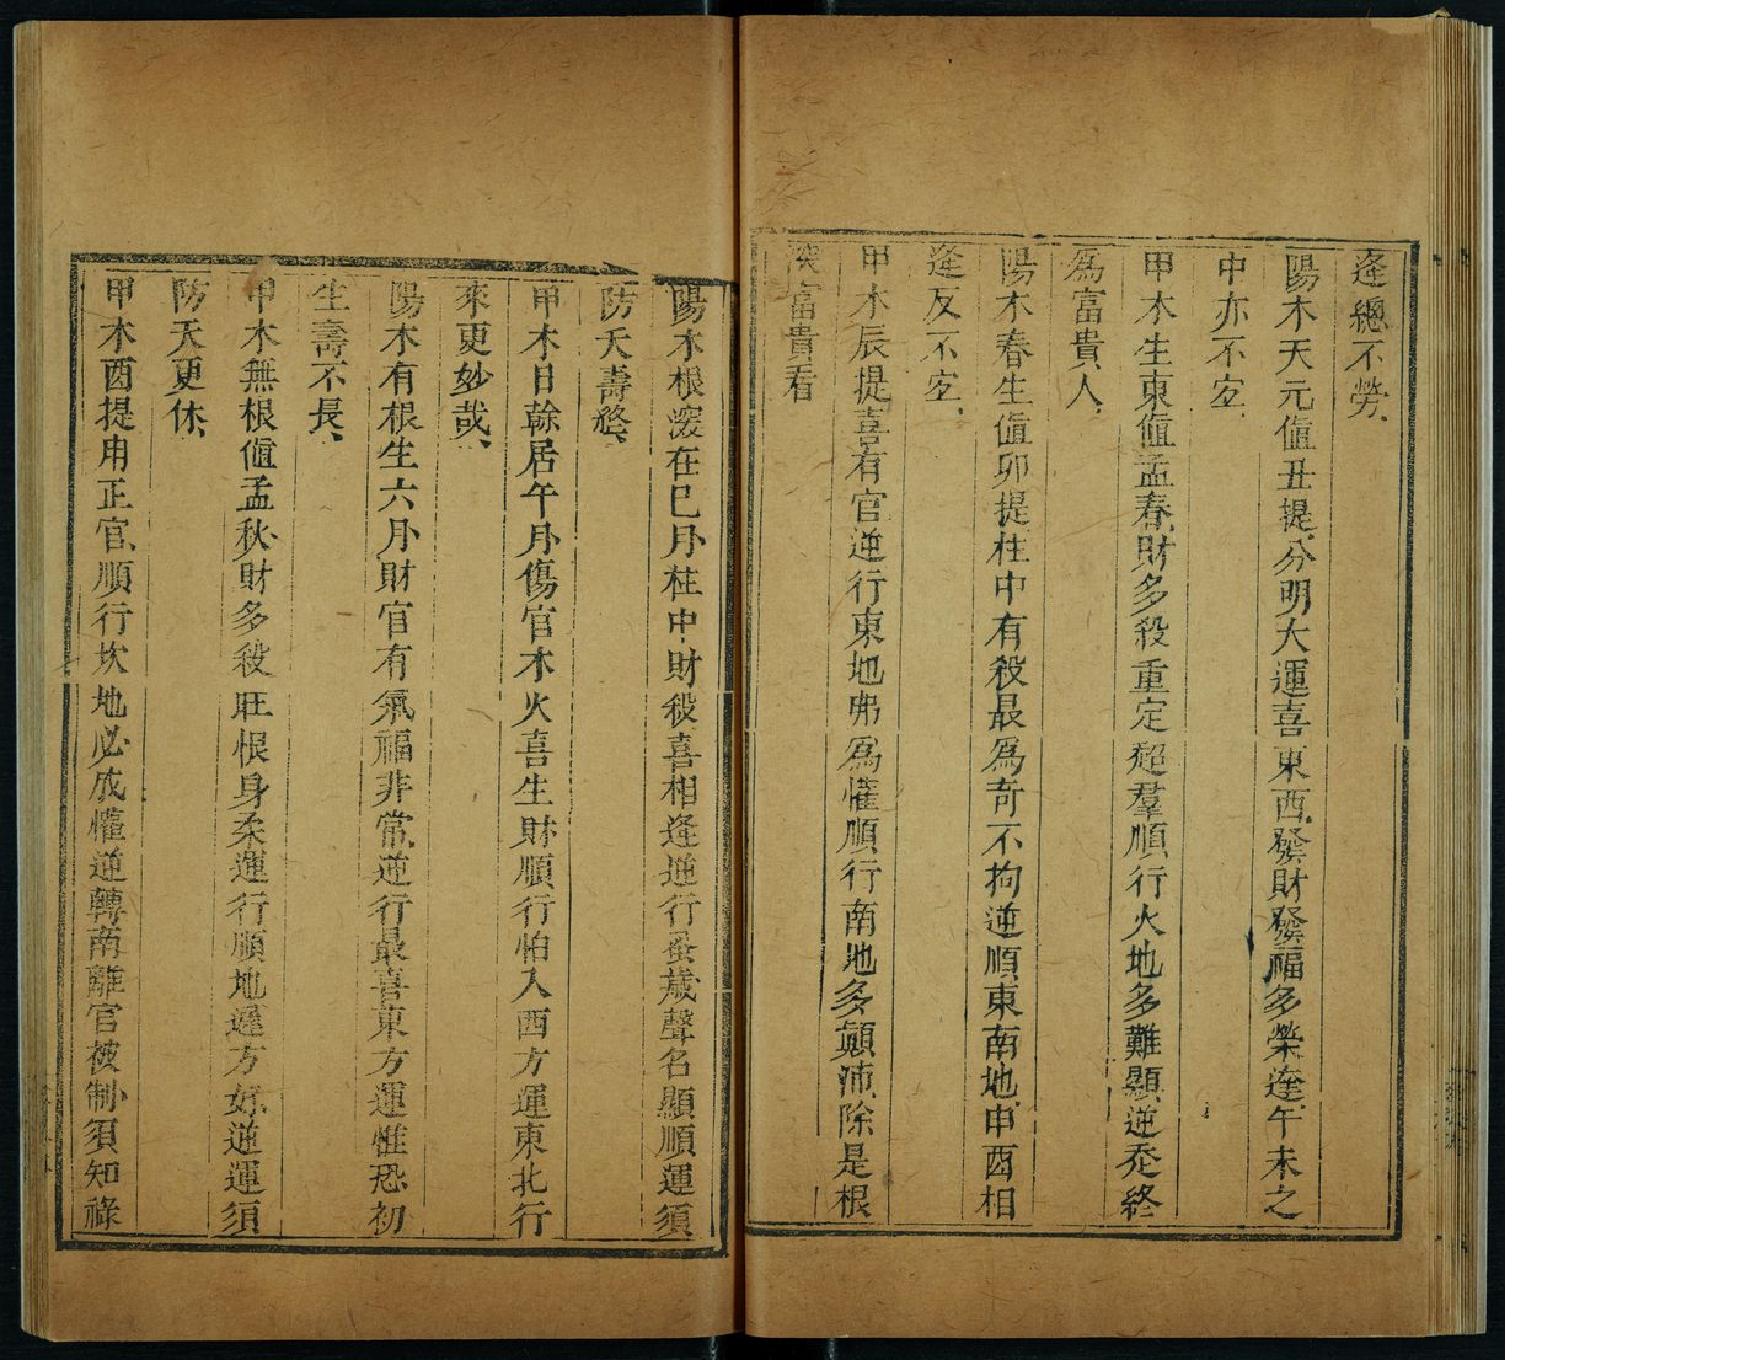 逢總不勞
陽木天元値丑提分明大運喜東西發財發福多榮達午未之
中亦不宐
甲木生東値孟春財多殺重定超羣順行火地多難顯逆炁終
爲富貴人
陽木春生値卯提柱中有殺最爲奇不拘逆順東南地申酉相
逢反不宐
甲木辰提喜有官逆行東地弗爲懽順行南地多顚沛除是根
深富貴看
陽木根深在巳月柱中財殺喜相逢逆行蚤歲聲名顯順運須
防夭壽終
甲木日幹居午月傷官木火喜生財順行怕入西方運東北行
來更妙哉
陽木有根生六月財官有氣福非常逆行最喜東方運惟恐初
生壽不長
甲木無根値孟秋財多殺旺恨身柔運行順地遲方好逆運須
防夭更休
甲木酉提用正官順行坎地必成懽逆轉南離官被制須知祿